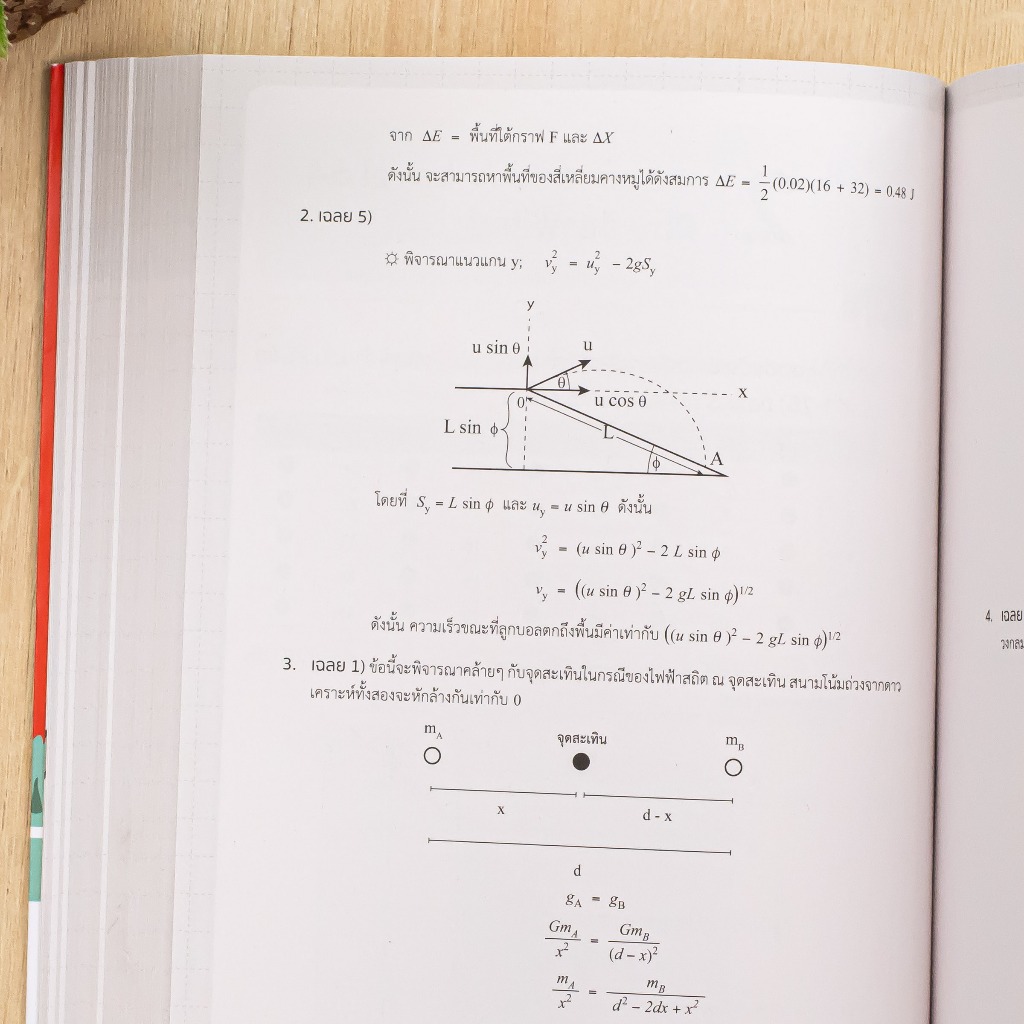 จาก ΔE = พื้นที่ใต้กราฟ F และ ΔX
ดังนั้น จะสามารถหาพื้นที่ของสี่เหลี่ยมคางหมูได้ดังสมการ ΔE = 1/2 (0.02)(16 + 32) = 0.48 J
2. เฉลย 5)
☼ พิจารณาแนวแกน y; v_y^2 = u_y^2 − 2gS_y
y
u sin θ
u
θ
x
0
u cos θ
L sin ϕ
L
ϕ
A
โดยที่ S_y = L sin ϕ และ u_y = u sin θ ดังนั้น
v_y^2 = (u sin θ )^2 − 2 L sin ϕ
v_y = ((u sin θ )^2 − 2 gL sin ϕ)^1/2
ดังนั้น ความเร็วขณะที่ลูกบอลตกถึงพื้นมีค่าเท่ากับ ((u sin θ )^2 − 2 gL sin ϕ)^1/2
3. เฉลย 1) ข้อนี้จะพิจารณาคล้ายๆ กับจุดสะเทินในกรณีของไฟฟ้าสถิต ณ จุดสะเทิน สนามโน้มถ่วงจากดาว
เคราะห์ทั้งสองจะหักล้างกันเท่ากับ 0
m_A
จุดสะเทิน
m_B
x
d - x
d
g_A = g_B
Gm_A/x^2 = Gm_B/(d − x)^2
m_A/x^2 = m_B/(d^2 − 2dx + x^2)
4. เฉลย
วงกลม